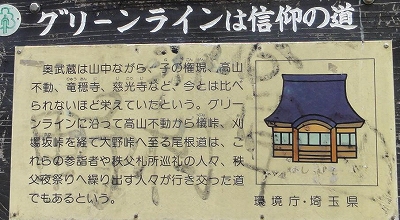 グリーンラインは信仰の道
奥武蔵は山中ながら、子の権現、高山
不動、竜穏寺、慈光寺など、今とは比べ
られないほど栄えていたという。グリー
ンラインに沿って高山不動から傘峠、刈
場坂峠を経て大野峠へ至る尾根道は、こ
れらの参詣者や秩父札所巡礼の人々、秩
父夜祭りへ繰り出す人々が行き交った道
でもあるという。
環境庁・埼玉県